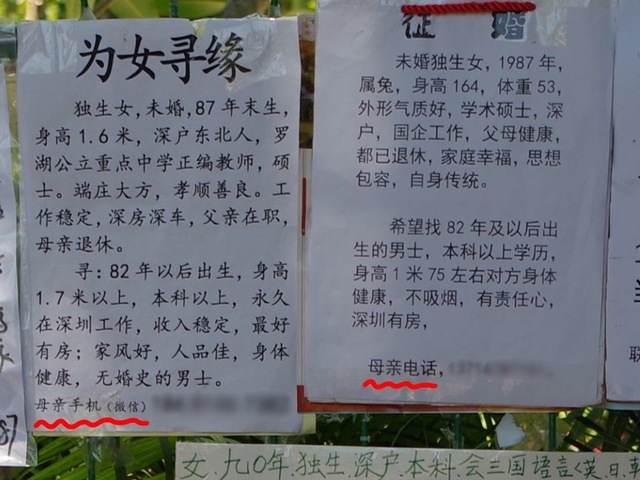 为女寻缘
独生女,未婚,87年末生,
身高1.6米,深户东北人,罗
湖公立重点中学正编教师,硕
士。端庄大方,孝顺善良。工
作稳定,深房深车,父亲在职,
母亲退休。
寻:82年以后出生,身高
1.7米以上,本科以上,永久
在深圳工作,收入稳定,最好
有房;家风好,人品佳,身体
健康,无婚史的男士。
母亲手机(微信)
征 婚
未婚独生女,1987年,
属兔,身高164,体重53,
外形气质好,学术硕士,深
户,国企工作,父母健康,
都已退休,家庭幸福,思想
包容,自身传统。
希望找82年及以后出
生的男士,本科以上学历,
身高1米75左右对方身体
健康,不吸烟,有责任心,
深圳有房,
母亲电话,
女.九〇年.独生.深户.本科.会三国语言(英.日.韩